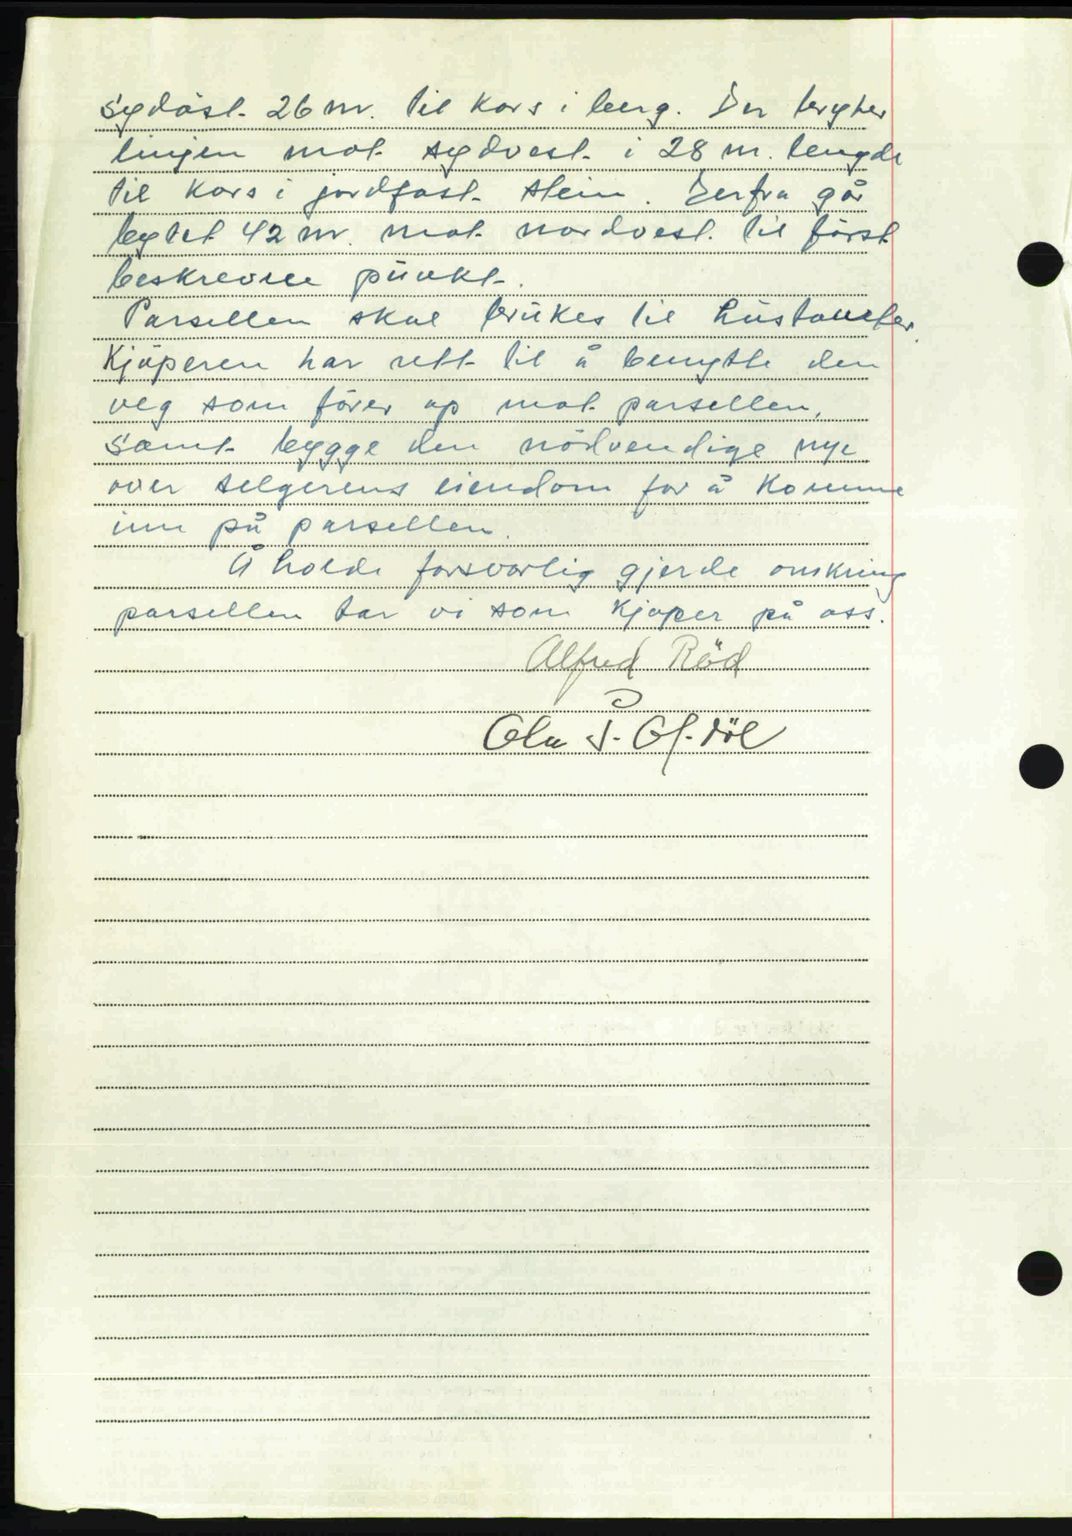 sydöst. 26 m. til kors i berg. Der bryter
linjen mot sydvest i 28 m. lengde
til kors i jordfast stein. Derfra går
bytet 42 m. mot nordvest til först
beskrevne punkt.
Parsellen skal brukes til hustomter.
Kjöperen har rett til å benytte den
veg som förer op mot parsellen,
samt bygge den nödvendige nye
over selgerens eiendom for å komme
inn på parsellen.
Å holde forsvarlig gjerde omkring
parsellen tar vi som kjöper på oss.
Alfred Röd
Ola